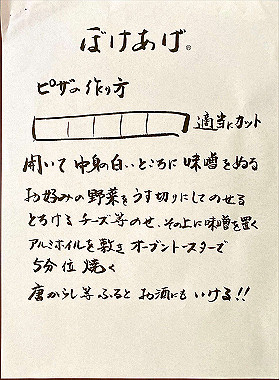 ぼけあげ®
ピザの作り方
適当にカット
開いて中身の白いところに味噌をぬる
お好みの野菜をうす切りにしてのせる
とろけるチーズ等のせ、その上に味噌を置く
アルミホイルを敷きオーブントースターで
5分位焼く
唐からし等ふるとお酒にもいける!!